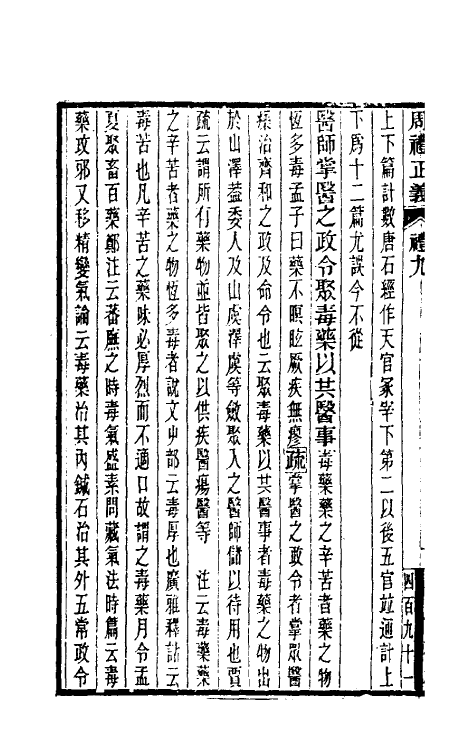 周禮正義 禮九
四百九十一
上下篇計數唐石經作天官冢宰下第二以後五官竝通計上
下爲十二篇尤誤今不從
醫師掌醫之政令聚毒藥以共醫事毒藥藥之辛苦者藥之物
恆多毒孟子曰藥不瞑眩厥疾無瘳疏掌醫之政令者掌眾醫
療治齊和之政及命令也云聚毒藥以共醫事者毒藥之物出
於山澤葢委人及山虞澤虞等斂聚入之醫師儲以待用也賈
疏云謂所有藥物並皆聚之以供疾醫瘍醫等 注云毒藥藥
之辛苦者藥之物恆多毒者說文屮部云毒厚也廣雅釋詁云
毒苦也凡辛苦之藥味必厚烈而不適口故謂之毒藥月令孟
夏聚畜百藥鄭注云蕃廡之時毒氣盛素問藏氣法時篇云毒
藥攻邪又移精變氣論云毒藥治其內鍼石治其外五常政令